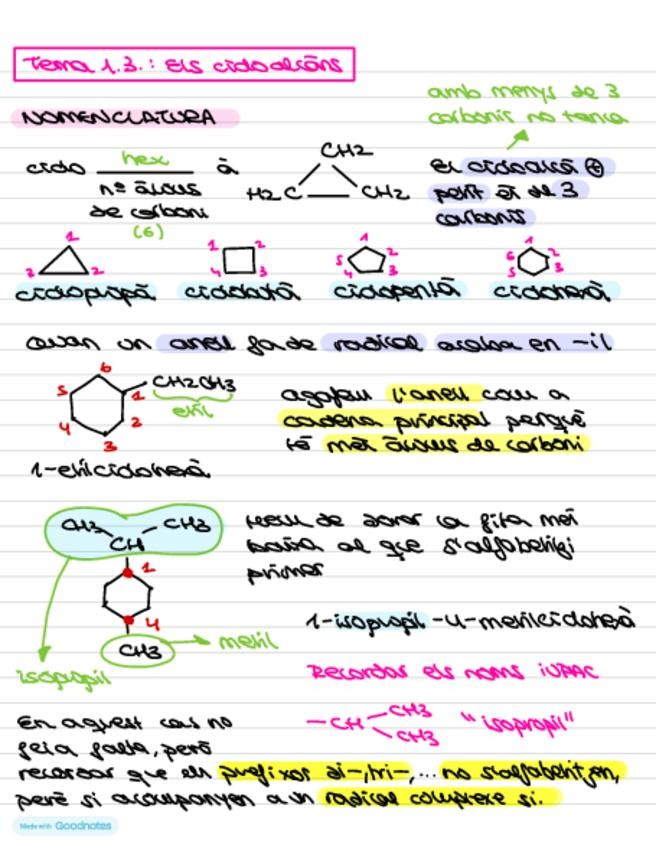 Tema 1.3.: Els cicloalcans
amb menys de 3
carbonis no tanca
NOMENCLATURA
ciclo hex à
nº àtoms
de carboni
(6)
CH2
H2C CH2
El cicloalcà ⊕
petit és de 3
carbonis
1
3 2
1 2
4 3
1
5 2
4 3
1
6 2
5 3
ciclopropà ciclobutà ciclopentà ciclohexà
Quan un anell fa de radical acaba en -il
6
5 1
4 2
3
CH2CH3
etil
agafem l'anell com a
cadena principal perquè
té més àtoms de carboni
1-etilciclohexà
CH3 CH3
CH
1
4
CH3
metil
isopropil
Hem de donar la fita més
baixa al que s'alfabetitzi
primer
1-isopropil-4-metilciclohexà
Recordar els noms IUPAC
-CH CH3 "isopropil"
CH3
En aquest cas no
feia falta, però
recordar que els prefixos di-, tri-,... no s'alfabetitzen,
però si acompanyen a un radical complexe si.
Made with Goodnotes